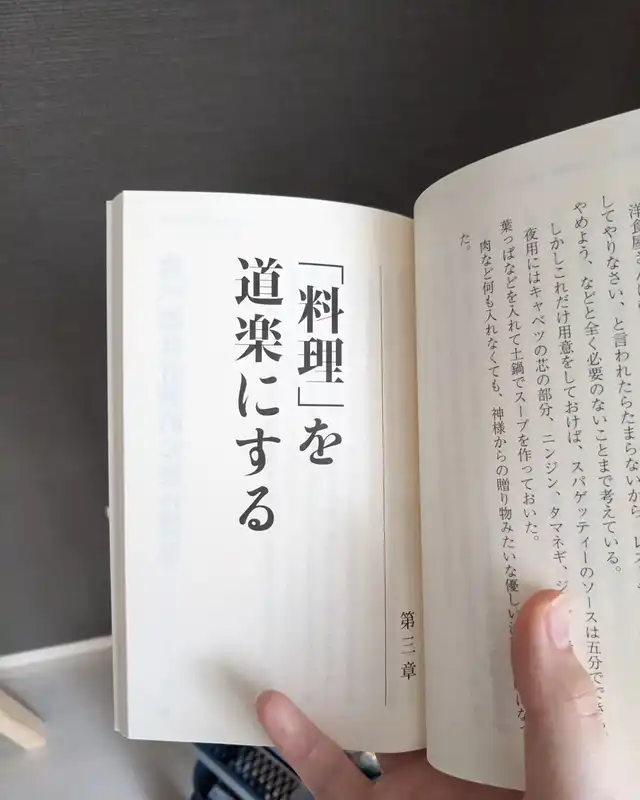 洋食屋さんに
してやりなさい、と言われたらたまらないから、レス
やめよう、などと全く必要のないことまで考えている。
しかしこれだけ用意をしておけば、スパゲッティーのソースは五分でで
夜用にはキャベツの芯の部分、ニンジン、タマネギ、ジ
葉っぱなどを入れて土鍋でスープを作っておいた。
肉など何も入れなくても、神様からの贈り物みたいな優しい
た。
第三章
「料理」を
道楽にする